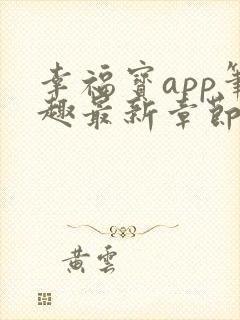 幸福寳app筆
趣最新章節
黄雲